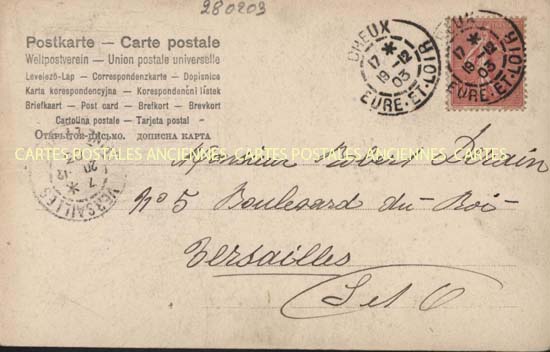 280203
Postkarte — Carte postale
Weltpostverein — Union postale universelle
Levelező-Lap — Correspondenzkarte — Dopisnice
Karta korespondencyjna — Korespondenčni listek
Briefkaart — Post card — Brefkort — Brevkort
Cartolina postale — Tarjeta postal
Открытое письмо. дописна карта
DREUX
17 *
19 -12
03
EURE-ET-LOIR
DREUX
17 *
19 -12
03
EURE-ET-LOIR
CARTES POSTALES ANCIENNES CARTES POSTALES ANCIENNES CARTES
Monsieur Robert
7 *
20 -12
VERSAILLES
No 5 Boulevard du Roi
Versailles
S et O